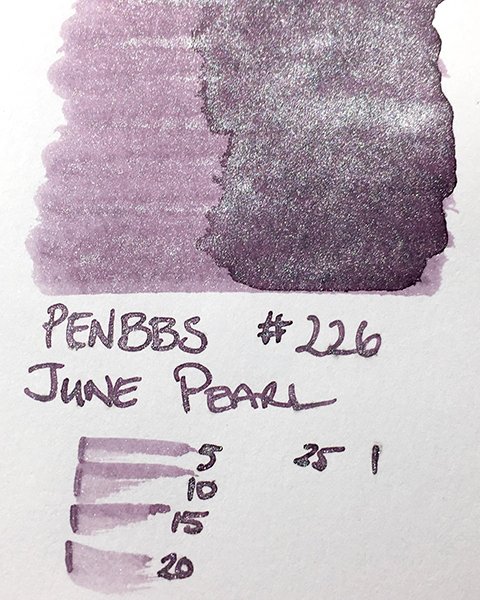 PENBBS #226
JUNE PEARL
5 25 1
10
15
20